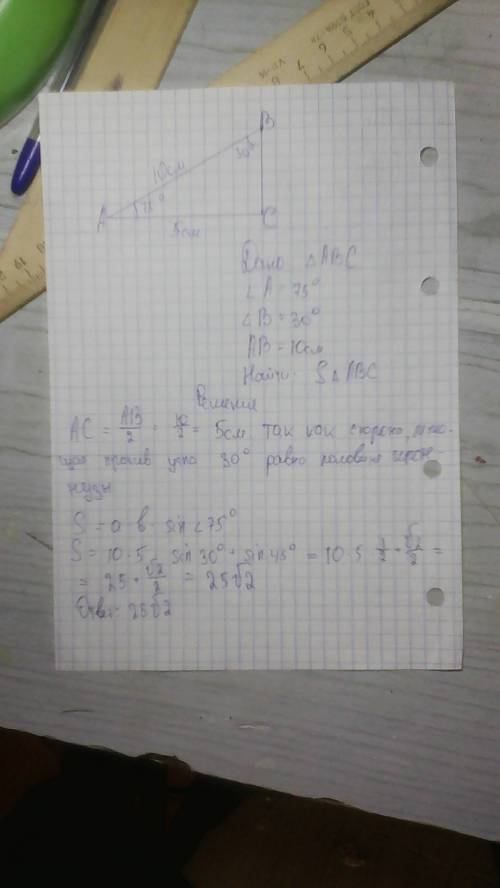 B
30°
10 см
A
C
5см
Дано △ABC
∠A = 75°
∠B = 30°
AB = 10см
Найти: S△ABC
Решение
AC = AB/2 = 10/2 = 5см, так как сторона, лежа-
щая против угла 30° равна половине гипоте-
нузы
S = a · b · sin∠75°
S = 10 · 5 · sin30° + sin45° = 10 · 5 · 1/2 + √2/2 =
= 25 + √2/2 = 25√2
Ответ: 25√2